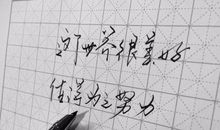 这世界很美好
值得为之努力